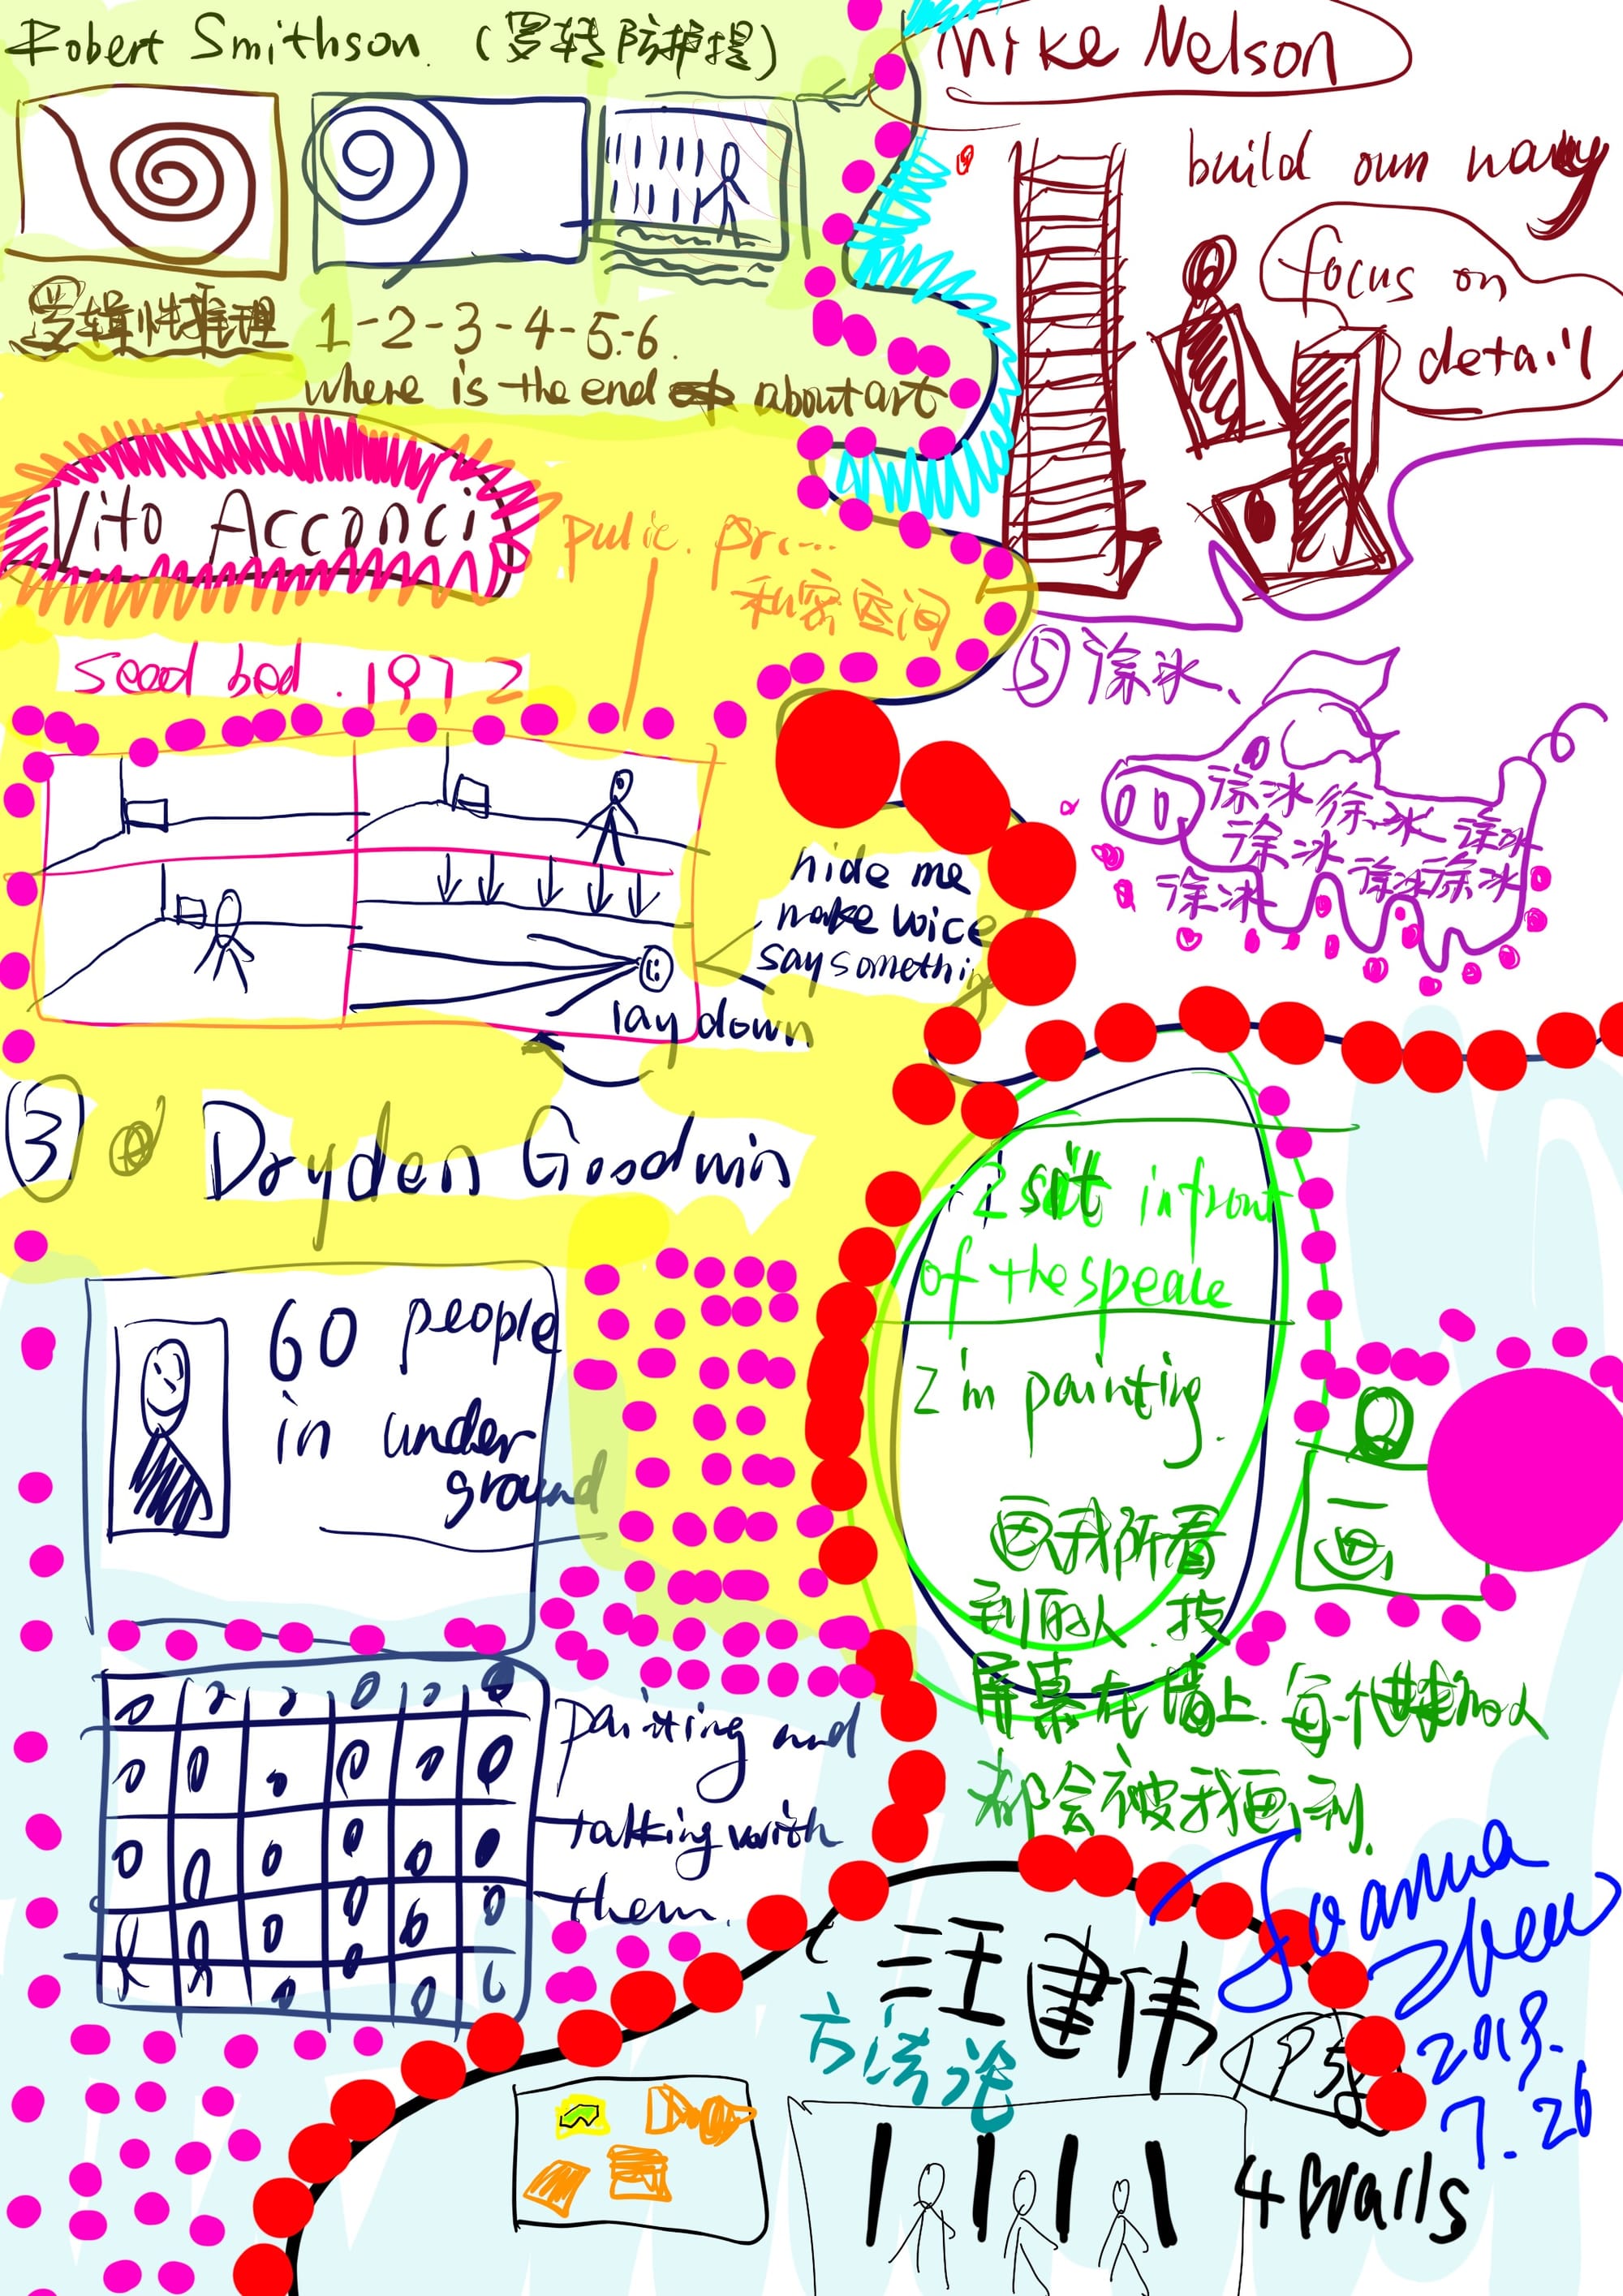 Robert Smithson. (罗转防护提)
逻辑性推理 1-2-3-4-5-6.
where is the end about art
Mike Nelson
build own way
focus on
detail
Vito Acconci
pulic. pr....
私密空间
seed bed. 1972
hide me
make voice
say somethin
lay down
⑤ 涂冰、
涂冰 徐冰 涂冰
涂冰 涂冰 涂冰
涂冰
③ Dryden Goodwin
60 people
in under
ground
painting and
talking with
them.
I sit in front
of the speace
I'm painting.
因我所看
到的人.投
屏幕在墙上.每个
都会被我画到.
画
汪建伟
方法论
1958
4 walls
Joanna
2018.
7.26